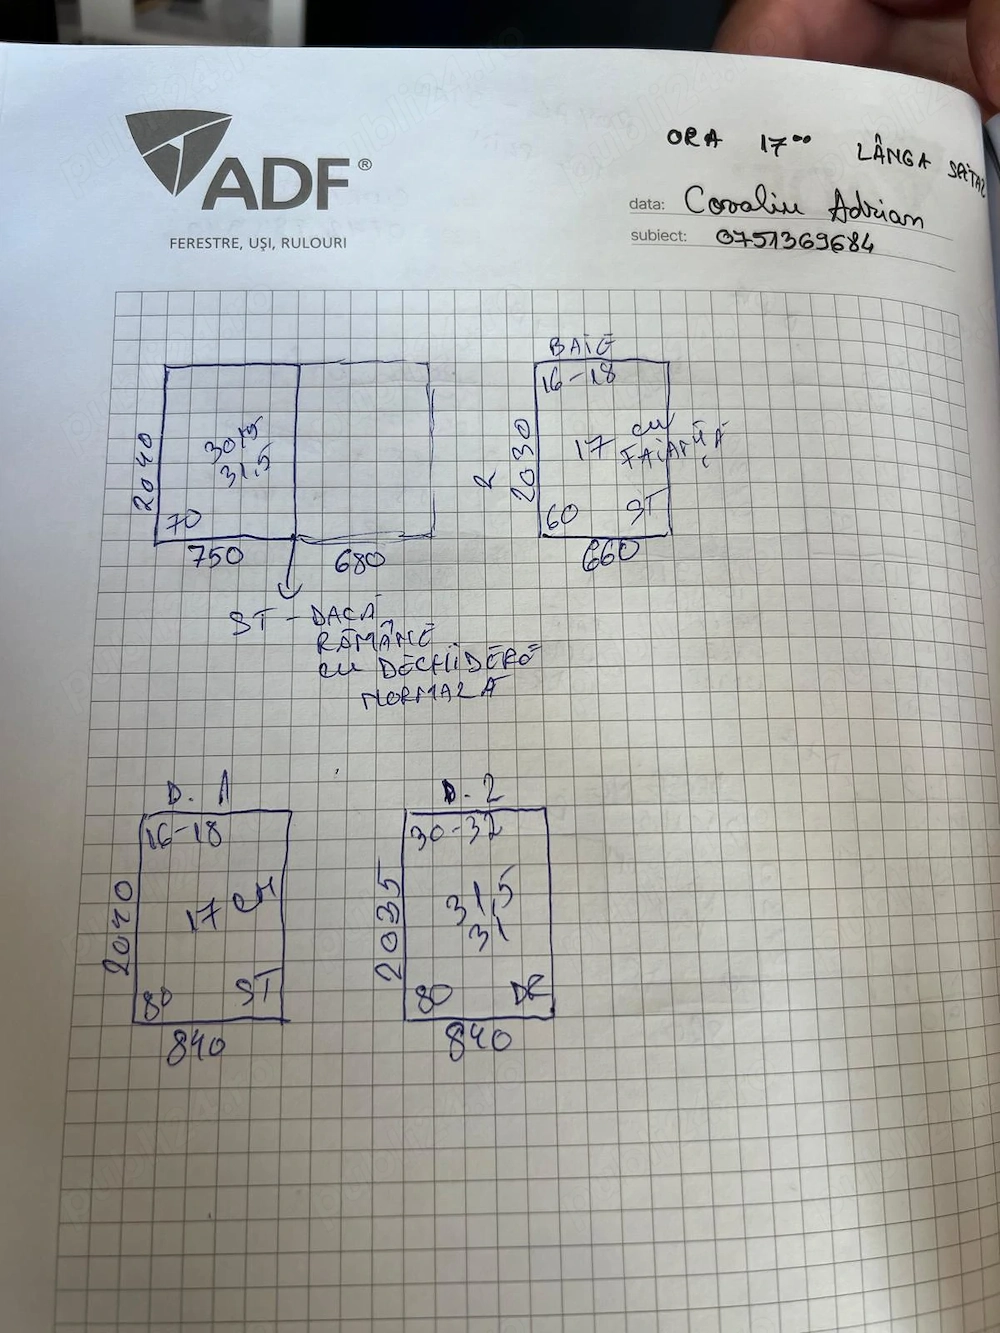 ADF®
FERESTRE, UȘI, RULOURI
ORA 17⁰⁰ LÂNGA
data: Covaliu Adrian
subiect: 0751369684
2040
31,5
70
750
680
ST - DACĂ
RĂMÂNE
cu DECHIDERE
NORMALĂ
BAIE
16-18
2030
17 cu
FAIANȚĂ
60 ST
660
D. 1
16-18
2040
17 cm
80 ST
840
D. 2
30-32
2035
31,5
31
80 DR
840
publi24.ro